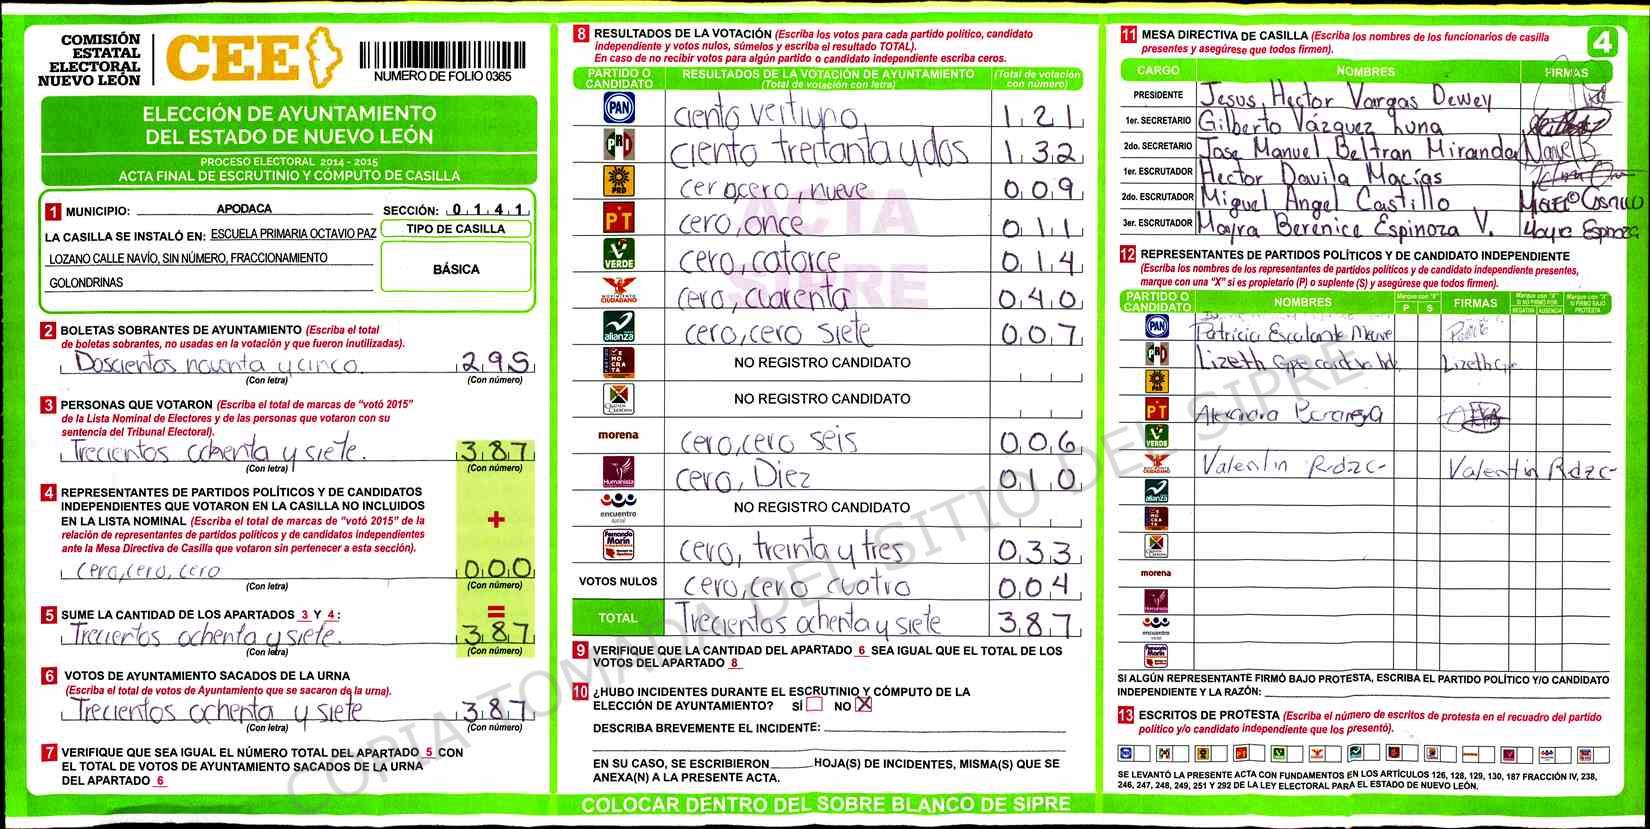 COMISIÓN
ESTATAL
ELECTORAL
NUEVO LEÓN
CEE
NUMERO DE FOLIO 0365
ELECCIÓN DE AYUNTAMIENTO
DEL ESTADO DE NUEVO LEÓN
PROCESO ELECTORAL 2014 - 2015
ACTA FINAL DE ESCRUTINIO Y CÓMPUTO DE CASILLA
1 MUNICIPIO: APODACA SECCIÓN: 0 1 4 1
LA CASILLA SE INSTALÓ EN: ESCUELA PRIMARIA OCTAVIO PAZ
LOZANO CALLE NAVÍO, SIN NÚMERO, FRACCIONAMIENTO
GOLONDRINAS
TIPO DE CASILLA
BÁSICA
2 BOLETAS SOBRANTES DE AYUNTAMIENTO (Escriba el total
de boletas sobrantes, no usadas en la votación y que fueron inutilizadas).
Doscientos noventa y cinco. 295
(Con letra) (Con número)
3 PERSONAS QUE VOTARON (Escriba el total de marcas de "votó 2015"
de la Lista Nominal de Electores y de las personas que votaron con su
sentencia del Tribunal Electoral).
Trecientos ochenta y siete. 387
(Con letra) (Con número)
4 REPRESENTANTES DE PARTIDOS POLÍTICOS Y DE CANDIDATOS
INDEPENDIENTES QUE VOTARON EN LA CASILLA NO INCLUIDOS
EN LA LISTA NOMINAL (Escriba el total de marcas de "votó 2015" de la
relación de representantes de partidos políticos y de candidatos independientes
ante la Mesa Directiva de Casilla que votaron sin pertenecer a esta sección).
+
cero, cero, cero 000
(Con letra) (Con número)
5 SUME LA CANTIDAD DE LOS APARTADOS 3 Y 4: =
Trecientos ochenta y siete. 387
(Con letra) (Con número)
6 VOTOS DE AYUNTAMIENTO SACADOS DE LA URNA
(Escriba el total de votos de Ayuntamiento que se sacaron de la urna).
Trecientos ochenta y siete 387
(Con letra) (Con número)
7 VERIFIQUE QUE SEA IGUAL EL NÚMERO TOTAL DEL APARTADO 5 CON
EL TOTAL DE VOTOS DE AYUNTAMIENTO SACADOS DE LA URNA
DEL APARTADO 6
8 RESULTADOS DE LA VOTACIÓN (Escriba los votos para cada partido político, candidato
independiente y votos nulos, súmelos y escriba el resultado TOTAL).
En caso de no recibir votos para algún partido o candidato independiente escriba ceros.
PARTIDO O CANDIDATO RESULTADOS DE LA VOTACIÓN DE AYUNTAMIENTO (Total de votación con letra) (Total de votación con número)
PAN ciento vertiuno 121
PRD ciento treitanta y dos 132
PRD cero,cero, nueve 009
PT cero, once 011
VERDE cero, catorce 014
MOVIMIENTO CIUDADANO cero, cuarenta 040
alianza cero, cero siete 007
NO REGISTRO CANDIDATO
NO REGISTRO CANDIDATO
morena cero, cero seis 006
Humanista cero, Diez 010
encuentro social NO REGISTRO CANDIDATO
Fernando Marín cero, treinta y tres 033
VOTOS NULOS cero, cero cuatro 004
TOTAL Trecientos ochenta y siete 387
9 VERIFIQUE QUE LA CANTIDAD DEL APARTADO 6 SEA IGUAL QUE EL TOTAL DE LOS
VOTOS DEL APARTADO 8
10 ¿HUBO INCIDENTES DURANTE EL ESCRUTINIO Y CÓMPUTO DE LA
ELECCIÓN DE AYUNTAMIENTO? SÍ NO X
DESCRIBA BREVEMENTE EL INCIDENTE:
EN SU CASO, SE ESCRIBIERON HOJA(S) DE INCIDENTES, MISMA(S) QUE SE
ANEXA(N) A LA PRESENTE ACTA.
COLOCAR DENTRO DEL SOBRE BLANCO DE SIPRE
11 MESA DIRECTIVA DE CASILLA (Escriba los nombres de los funcionarios de casilla
presentes y asegúrese que todos firmen).
4
CARGO NOMBRES FIRMAS
PRESIDENTE Jesus Hector Vargas Dewey
1er. SECRETARIO Gilberto Vázquez Luna
2do. SECRETARIO Jose Manuel Beltran Miranda Manuel B
1er. ESCRUTADOR Hector Davila Macías
2do. ESCRUTADOR Miguel Angel Castillo MIGUEL CASTILLO
3er. ESCRUTADOR Mayra Berenice Espinoza V. Mayra Espinoza
12 REPRESENTANTES DE PARTIDOS POLÍTICOS Y DE CANDIDATO INDEPENDIENTE
(Escriba los nombres de los representantes de partidos políticos y de candidato independiente presentes,
marque con una "X" si es propietario (P) o suplente (S) y asegúrese que todos firmen).
PARTIDO O CANDIDATO NOMBRES Marque con "X" P S FIRMAS Marque con "X" SI NO FIRMÓ POR: NEGATIVA AUSENCIA Marque con "X" SI FIRMÓ BAJO PROTESTA
PAN Patricia Escalante
PRD Lizeth Gpe Lizeth Gpe
PRD
PT Alexandra
VERDE
MOVIMIENTO CIUDADANO Valentin Rdzc- Valentin Rdzc-
alianza
morena
Humanista
encuentro social
Fernando Marín
SI ALGÚN REPRESENTANTE FIRMÓ BAJO PROTESTA, ESCRIBA EL PARTIDO POLÍTICO Y/O CANDIDATO
INDEPENDIENTE Y LA RAZÓN:
13 ESCRITOS DE PROTESTA (Escriba el número de escritos de protesta en el recuadro del partido
político y/o candidato independiente que los presentó).
SE LEVANTÓ LA PRESENTE ACTA CON FUNDAMENTOS EN LOS ARTÍCULOS 126, 128, 129, 130, 187 FRACCIÓN IV, 238,
246, 247, 248, 249, 251 Y 292 DE LA LEY ELECTORAL PARA EL ESTADO DE NUEVO LEÓN.
ACTA
SIPRE
COPIA TOMADA DEL SITIO DEL SIPRE